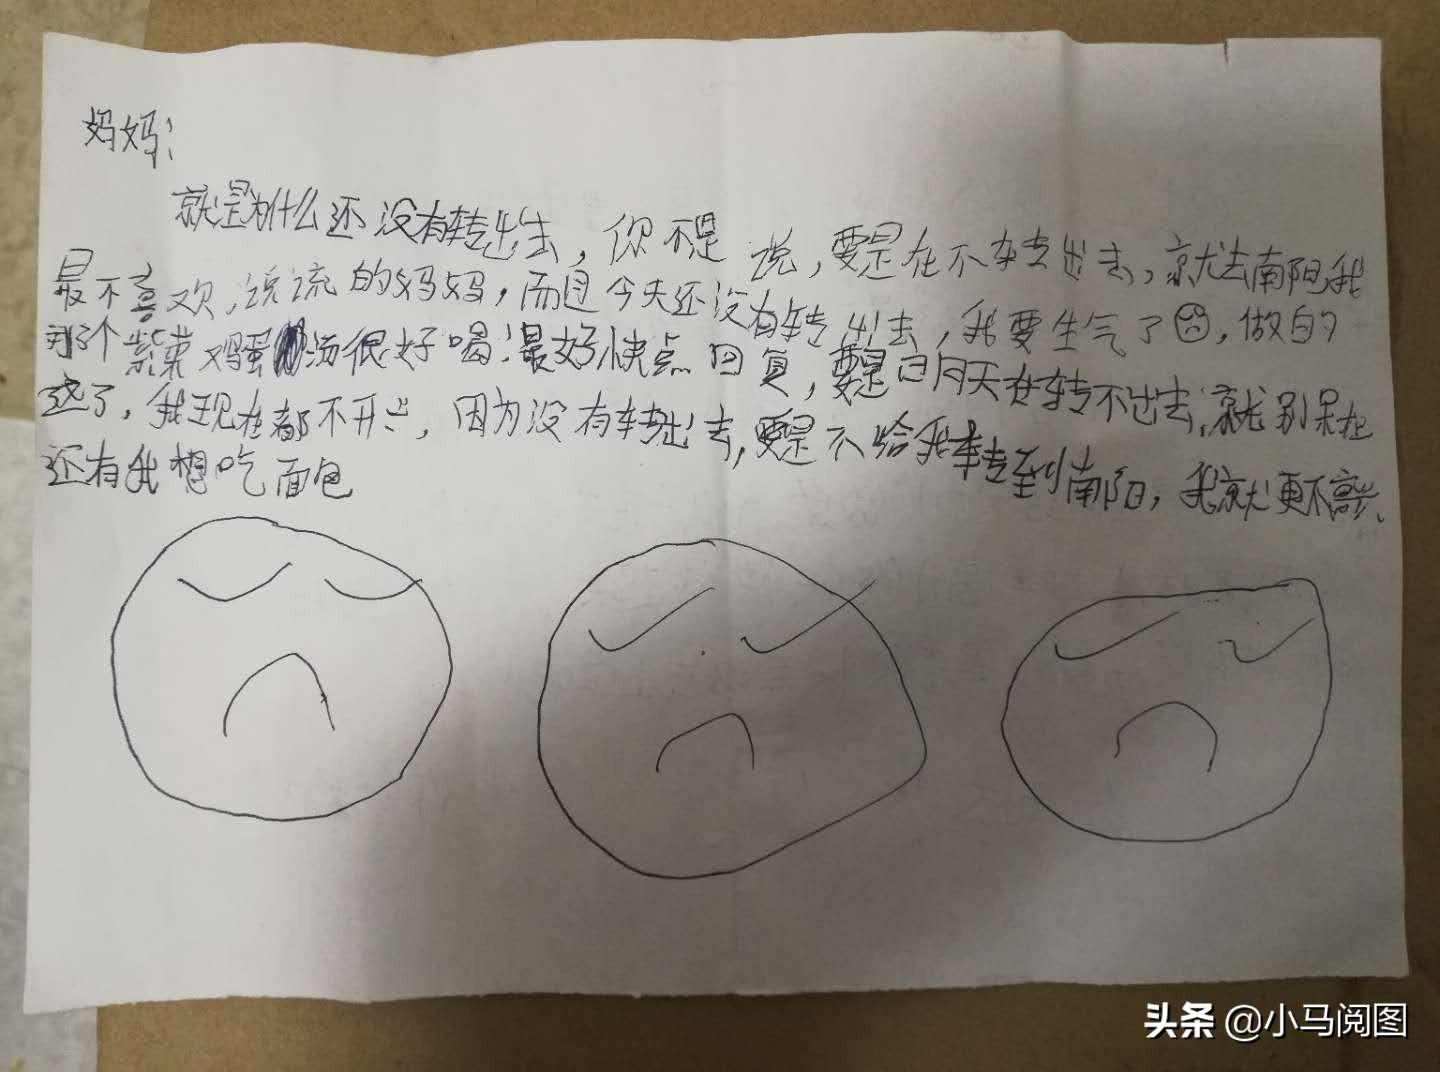 妈妈：
就是为什么还没有转出去，你不是说，要是在不转出去，就去南阳，我
最不喜欢，说流的妈妈，而且今天还没有转出去，我要生气了，做的
那个紫菜鸡蛋汤很好喝！最好快点回复，要是明天在转不出去，就别呆在
这了，我现在都不开心，因为没有转出去，要是不给我转到南阳，我就更不高兴、
还有我想吃面包
头条 @小马阅图